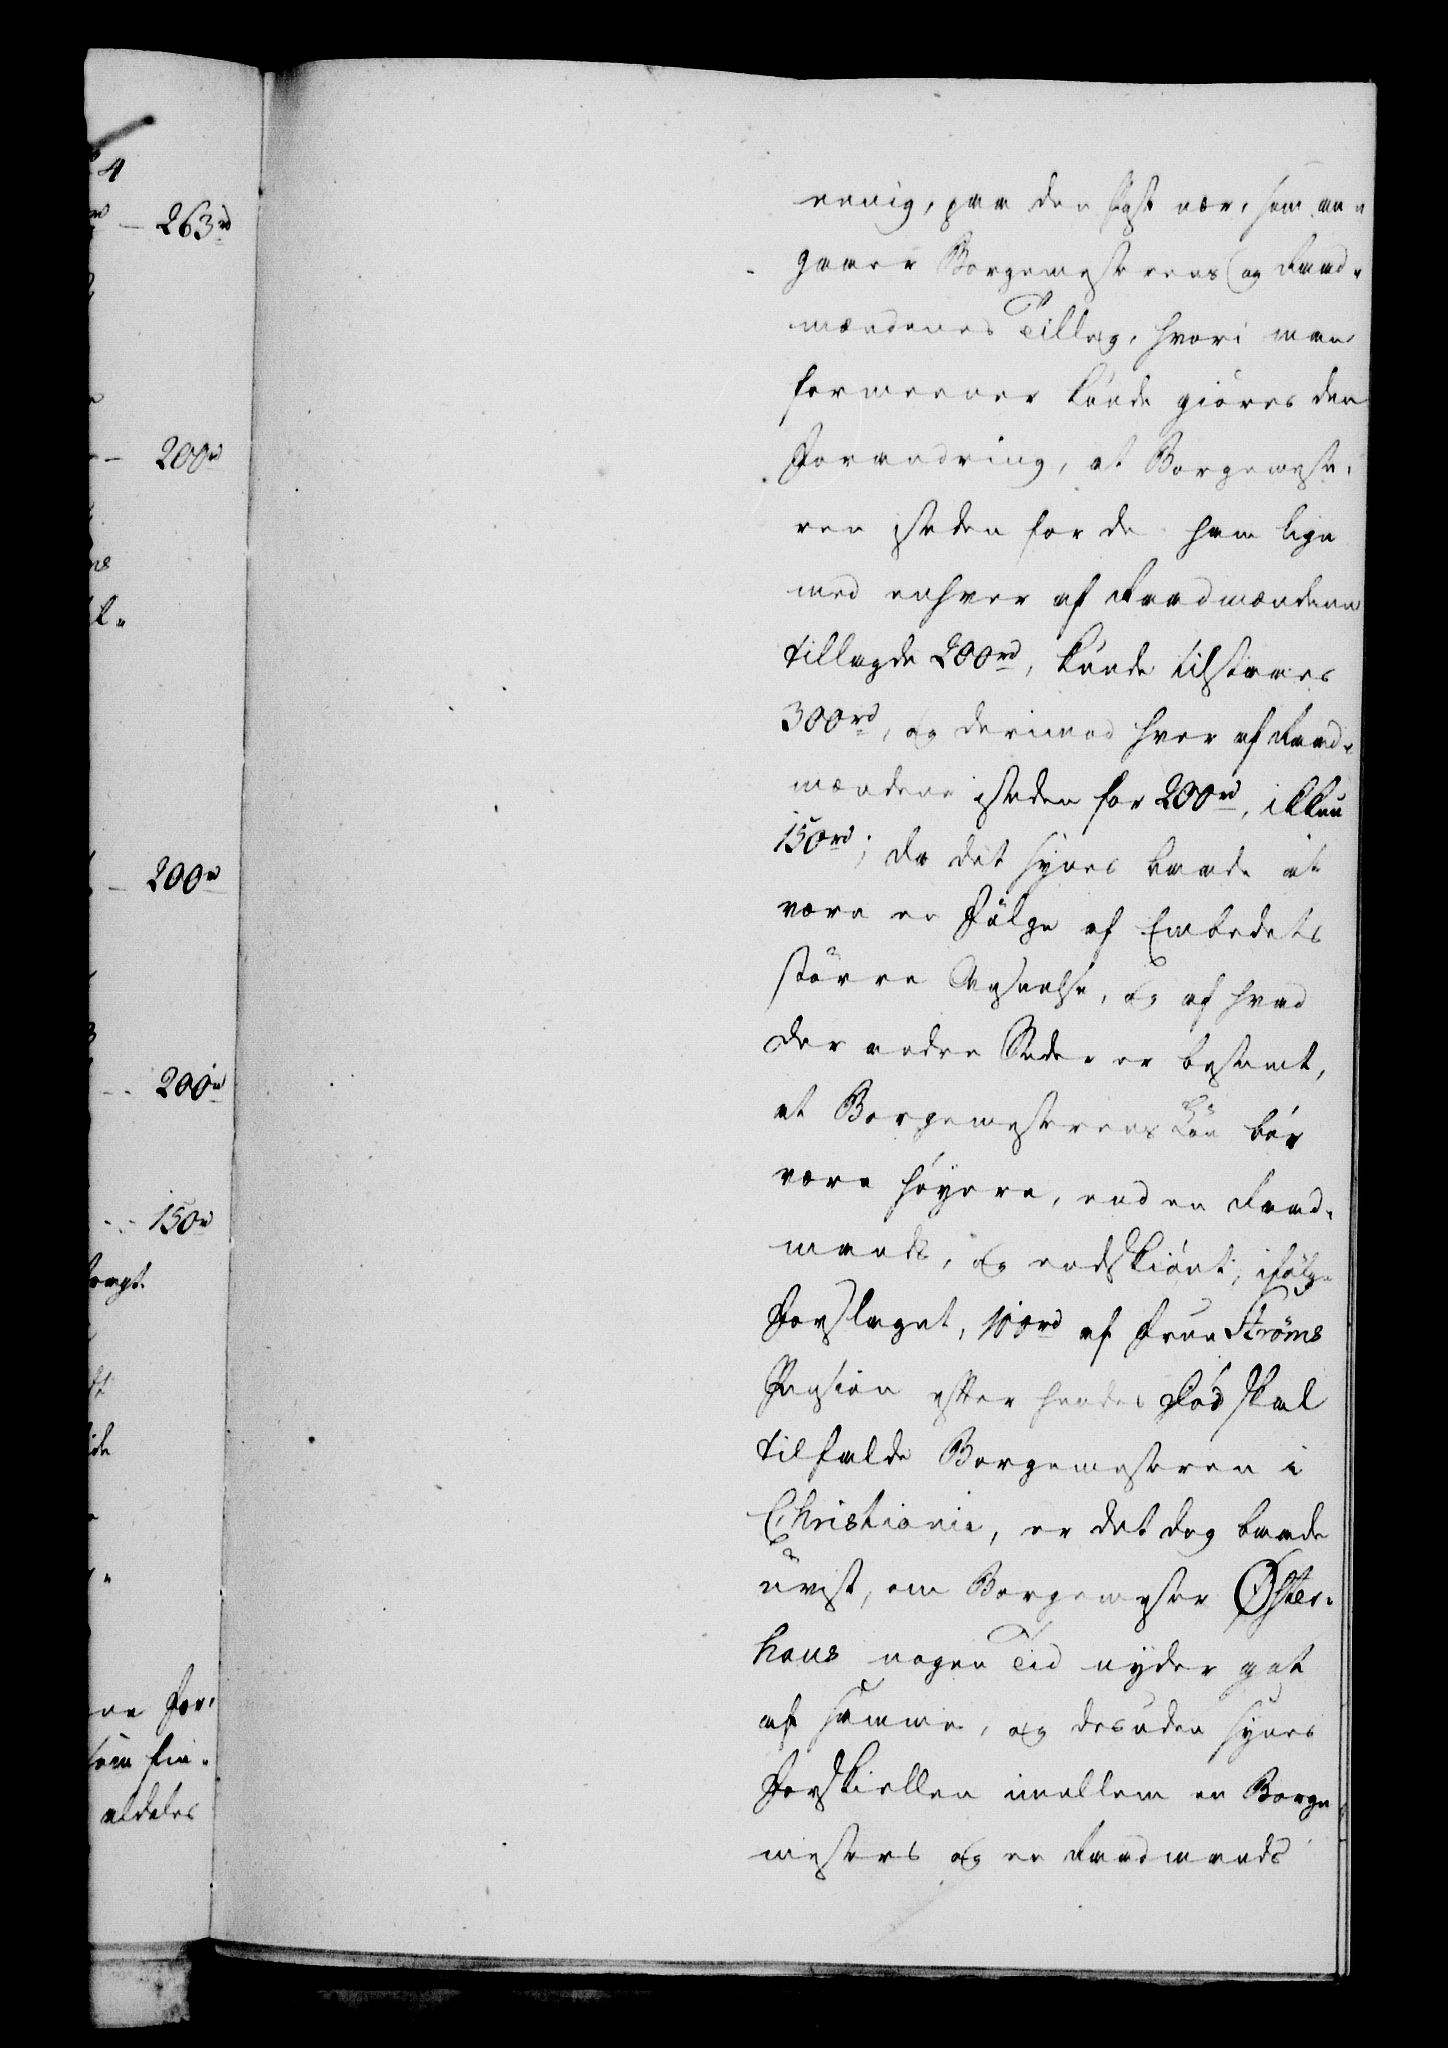 4
263rd
200rd
200rd
200rd
150rd
ne For-
som fin-
aldeles
eenig, paa den Post nær, som an-
gaaer Borgemesterens og Raad-
mændenes Tillæg, hvori man
formeener kunde giøres den
Forandring, at Borgemeste-
ren isteden for de ham lige
med enhver af Raadmændene
tillagde 200rd, kunde tilstaaes
300rd, og derimod hver af Raad-
mændene isteden for 200rd, ikkun
150rd; da det synes baade at
være en Følge af Embedets
større Anseelse, og af hvad
der andre Steder er bestemt,
at Borgemesterens Løn bør
være høyere, end en Raad-
mands, og endskiønt, ifølge
Forslaget, 100rd af Frue Strøms
Pension efter hendes Død skal
tilfalde Borgemesteren i
Christiania, er det dog baade
uvist, om Borgemester Øster-
haus nogen Tid nyder godt
af samme, og desuden synes
Forskiellen imellem en Borge
mesters og en Raadmands